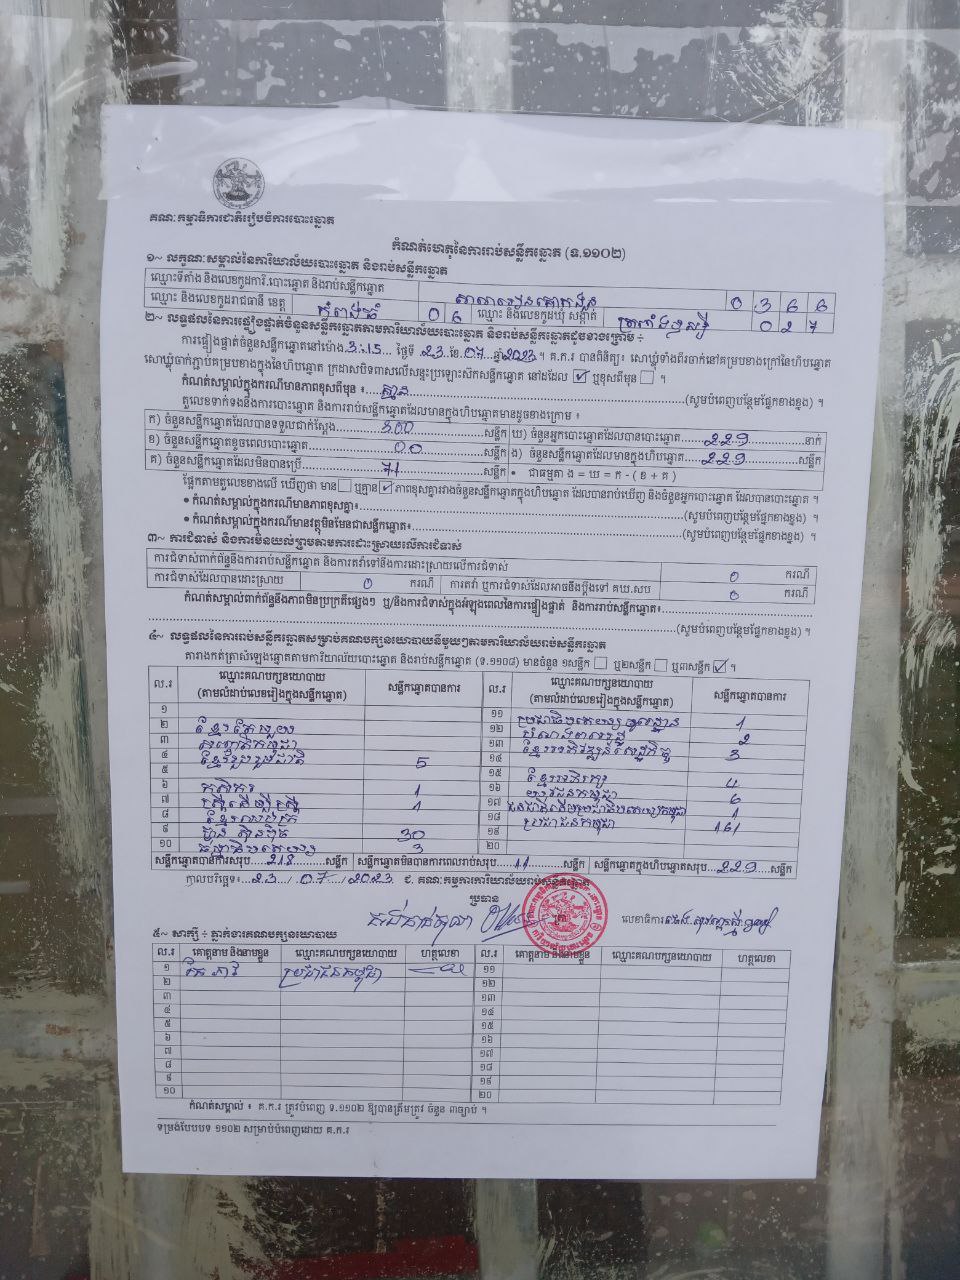 គណៈកម្មាធិការជាតិរៀបចំការបោះឆ្នោត
កំណត់ហេតុនៃការរាប់សន្លឹកឆ្នោត (ទ.១១០២)
១~ លក្ខណៈសម្គាល់នៃការិយាល័យបោះឆ្នោត និងរាប់សន្លឹកឆ្នោត
ឈ្មោះទីតាំង និងលេខកូដការិ.បោះឆ្នោត និងរាប់សន្លឹកឆ្នោត 0 3 6 6
ឈ្មោះ និងលេខកូដរាជធានី ខេត្ត កំពង់ធំ 0 6 ឈ្មោះ និងលេខកូដឃុំ សង្កាត់ 0 2 7
២~ លទ្ធផលនៃការផ្ទៀងផ្ទាត់ចំនួនសន្លឹកឆ្នោតតាមការិយាល័យបោះឆ្នោត និងរាប់សន្លឹកឆ្នោតដូចខាងក្រោម ÷
ការផ្ទៀងផ្ទាត់ចំនួនសន្លឹកឆ្នោតនៅម៉ោង 3:15 ថ្ងៃទី 23 ខែ 07 ឆ្នាំ 2023 ។ គ.ក.រ បានពិនិត្យ៖ សោឃ្លុំទាំងពីរចាក់នៅគម្របខាងក្រៅនៃហិបឆ្នោត
សោឃ្លុំចាក់ភ្ជាប់គម្របខាងក្នុងនៃហិបឆ្នោត ក្រដាសបិទពាសលើសន្ទះប្រឡោះស៊កសន្លឹកឆ្នោត នៅដដែល ☑ ឬខុសពីមុន ☐ ។
កំណត់សម្គាល់ក្នុងករណីមានភាពខុសពីមុន ៖ គ្មាន (សូមបំពេញបន្ថែមផ្នែកខាងខ្នង) ។
តួលេខទាក់ទងនឹងការបោះឆ្នោត និងការរាប់សន្លឹកឆ្នោតដែលមានក្នុងហិបឆ្នោតមានដូចខាងក្រោម ៖
ក) ចំនួនសន្លឹកឆ្នោតដែលបានទទួលជាក់ស្តែង 300 សន្លឹក ឃ) ចំនួនអ្នកបោះឆ្នោតដែលបានបោះឆ្នោត 229 នាក់
ខ) ចំនួនសន្លឹកឆ្នោតខូចពេលបោះឆ្នោត 00 សន្លឹក ង) ចំនួនសន្លឹកឆ្នោតដែលមានក្នុងហិបឆ្នោត 229 សន្លឹក
គ) ចំនួនសន្លឹកឆ្នោតដែលមិនបានប្រើ 71 សន្លឹក • ជាធម្មតា ង = ឃ = ក - ( ខ + គ )
ផ្អែកតាមតួលេខខាងលើ ឃើញថា មាន ☐ ឬគ្មាន ☑ ភាពខុសគ្នារវាងចំនួនសន្លឹកឆ្នោតក្នុងហិបឆ្នោត ដែលបានរាប់ឃើញ និងចំនួនអ្នកបោះឆ្នោត ដែលបានបោះឆ្នោត ។
• កំណត់សម្គាល់ក្នុងករណីមានភាពខុសគ្នា៖ (សូមបំពេញបន្ថែមផ្នែកខាងខ្នង) ។
• កំណត់សម្គាល់ក្នុងករណីមានវត្ថុមិនមែនជាសន្លឹកឆ្នោត៖ (សូមបំពេញបន្ថែមផ្នែកខាងខ្នង) ។
៣~ ការជំទាស់ និងការមិនយល់ព្រមតាមការដោះស្រាយលើការជំទាស់
ការជំទាស់ពាក់ព័ន្ធនឹងការរាប់សន្លឹកឆ្នោត និងការតវ៉ាទៅនឹងការដោះស្រាយលើការជំទាស់ 0 ករណី
ការជំទាស់ដែលបានដោះស្រាយ 0 ករណី ការតវ៉ា ឬការជំទាស់ដែលអាចនឹងប្តឹងទៅ គឃ.សប 0 ករណី
កំណត់សម្គាល់ពាក់ព័ន្ធនឹងភាពមិនប្រក្រតីផ្សេងៗ ឬ/និងការជំទាស់ក្នុងអំឡុងពេលនៃការផ្ទៀងផ្ទាត់ និងការរាប់សន្លឹកឆ្នោត៖
(សូមបំពេញបន្ថែមផ្នែកខាងខ្នង) ។
៤~ លទ្ធផលនៃការរាប់សន្លឹកឆ្នោតសម្រាប់គណបក្សនយោបាយនីមួយៗតាមការិយាល័យរាប់សន្លឹកឆ្នោត
តារាងកត់ត្រាសំឡេងឆ្នោតតាមការិយាល័យបោះឆ្នោត និងរាប់សន្លឹកឆ្នោត (ទ.១១០៨) មានចំនួន ១សន្លឹក ☐ ឬ២សន្លឹក ☐ ឬ៣សន្លឹក ☑ ។
ល.រ ឈ្មោះគណបក្សនយោបាយ (តាមលំដាប់លេខរៀងក្នុងសន្លឹកឆ្នោត) សន្លឹកឆ្នោតបានការ ល.រ ឈ្មោះគណបក្សនយោបាយ (តាមលំដាប់លេខរៀងក្នុងសន្លឹកឆ្នោត) សន្លឹកឆ្នោតបានការ
១ ១១ 1
២ ១២ 2
៣ ១៣ 3
៤ ខ្មែររួបរួមជាតិ 5 ១៤
៥ ១៥ 4
៦ កសិករ 1 ១៦ យុវជនកម្ពុជា 6
៧ ស្ត្រីដើម្បីស្ត្រី 1 ១៧ 1
៨ ១៨ ប្រជាជនកម្ពុជា 161
៩ ហ្វ៊ុនស៊ិនប៉ិច 30 ១៩
១០ 3 ២០
សន្លឹកឆ្នោតបានការសរុប 218 សន្លឹក សន្លឹកឆ្នោតមិនបានការពេលរាប់សរុប 11 សន្លឹក សន្លឹកឆ្នោតក្នុងហិបឆ្នោតសរុប 229 សន្លឹក
កាលបរិច្ឆេទ៖ 23 / 07 / 2023 ជ. គណៈកម្មការការិយាល័យរាប់សន្លឹកឆ្នោត
ប្រធាន
លេខាធិការ
៥~ សាក្សី ÷ ភ្នាក់ងារគណបក្សនយោបាយ
ល.រ គោត្តនាម និងនាមខ្លួន ឈ្មោះគណបក្សនយោបាយ ហត្ថលេខា ល.រ គោត្តនាម និងនាមខ្លួន ឈ្មោះគណបក្សនយោបាយ ហត្ថលេខា
១ កែ ភារី ប្រជាជនកម្ពុជា ១១
២ ១២
៣ ១៣
៤ ១៤
៥ ១៥
៦ ១៦
៧ ១៧
៨ ១៨
៩ ១៩
១០ ២០
កំណត់សម្គាល់ ៖ គ.ក.រ ត្រូវបំពេញ ទ.១១០២ ឱ្យបានត្រឹមត្រូវ ចំនួន ៣ច្បាប់ ។
ទម្រង់បែបបទ ១១០២ សម្រាប់បំពេញដោយ គ.ក.រ